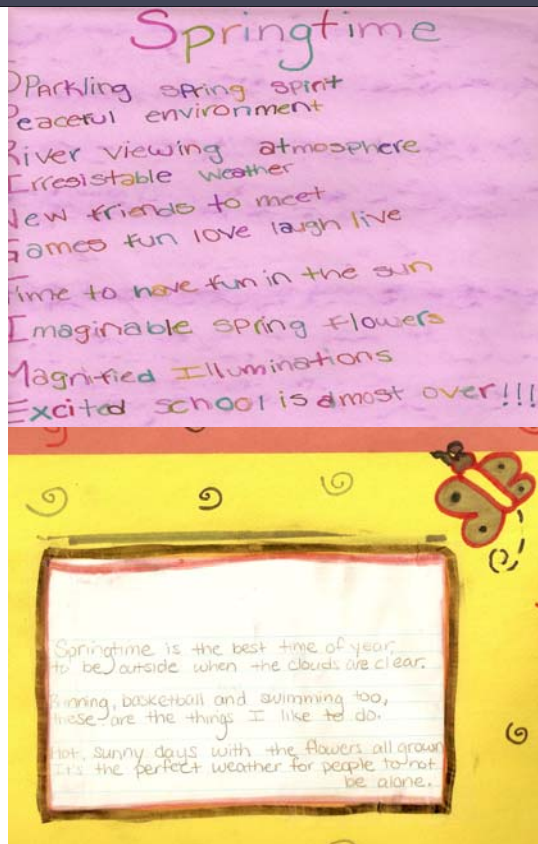 Springtime
SPArkling spring spirit
Peaceful environment
River viewing atmosphere
Irresistable weather
New friends to meet
Games fun love laugh live
Time to have fun in the sun
Imaginable spring flowers
Magnified Illuminations
Excited school is almost over!!!
Springtime is the best time of year,
to be outside when the clouds are clear.
Running, basketball and swimming too,
these are the things I like to do.
Hot, sunny days with the flowers all grown
It's the perfect weather for people to not
be alone.